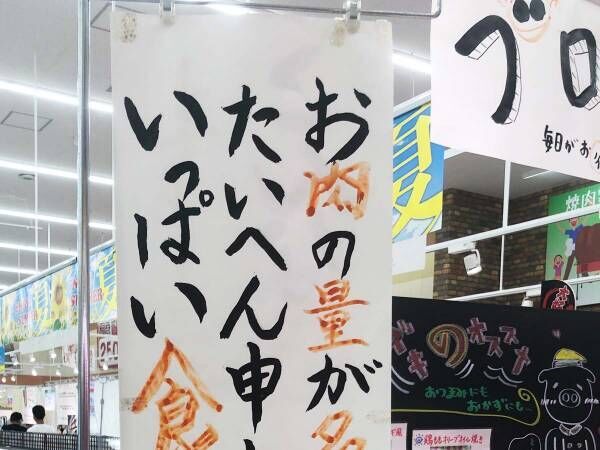 お肉の量が多
たいへん申し
いっぱい食
ブロ
毎日がお
焼肉
ザキのオススメ
おつまみにも
おかずにも…
鶏ももオリーブオイル焼き